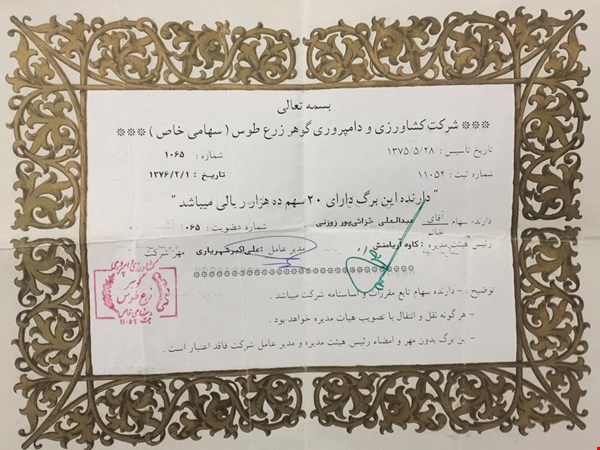 بسمه تعالی
*** شرکت کشاورزی و دامپروری گوهر زرع طوس ( سهامی خاص ) ***
تاریخ تاسیس : ۱۳۷۵/۵/۲۸ شماره : ۱۰۶۵
شماره ثبت : ۱۱۰۵۲ تاریخ : ۱۳۷۶/۲/۱
" دارنده این برگ دارای ۲۰ سهم ده هزار ریالی میباشد "
دارنده سهام آقای خانم عبدالعلی خزائی‌پور زوزنی شماره عضویت : ۰۶۵
رئیس هیئت مدیره : کاوه آریامنش مدیر عامل : علی‌اکبر شهریاری مهر شرکت
کشاورزی
گوهر
زرع طوس
سهامی خاص
ثبت ۱۱۰۵۲
توضیح : – دارنده سهام تابع مقررات و اساسنامه شرکت میباشد .
– هر گونه نقل و انتقال با تصویب هیات مدیره خواهد بود .
– این برگ بدون مهر و امضاء رئیس هیئت مدیره و مدیر عامل شرکت فاقد اعتبار است .